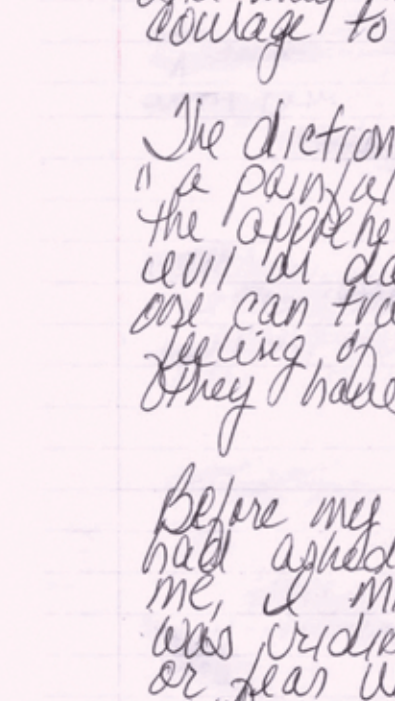 courage to
The diction
" a painful
the apprehe
evil or da
one can tru
feeling of
they have
Before my
had asked
me, I mi
was
or fear w